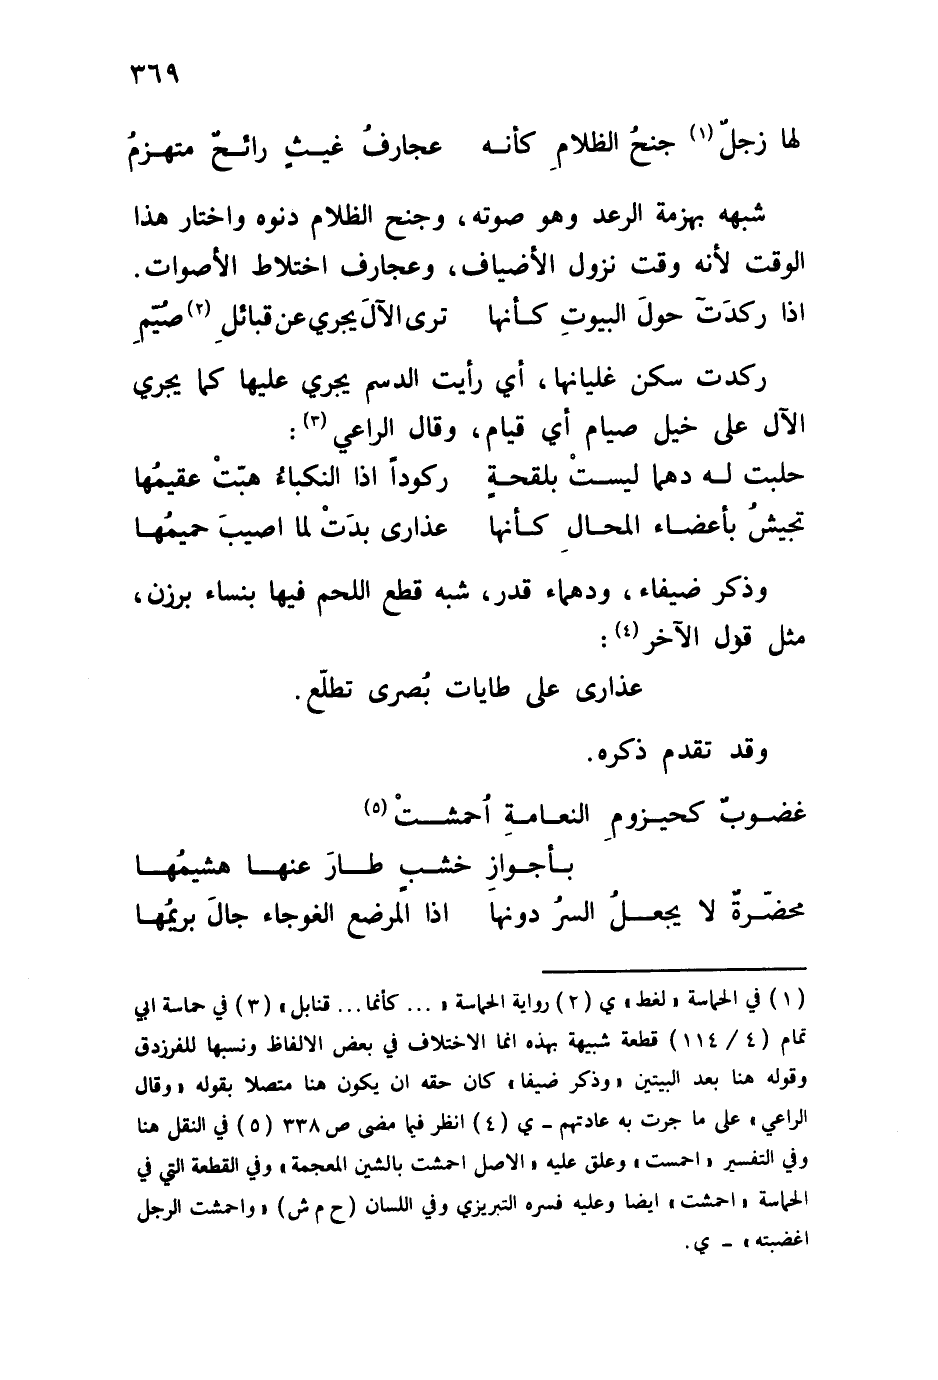 ٣٦٩
لها زجلٌ (١) جنحُ الظلامِ كأنـه عجارفُ غيـثٍ رائـحٌ متهـزمُ
شبهه بهزمة الرعد وهو صوته، وجنح الظلام دنوه واختار هذا
الوقت لأنه وقت نزول الأضياف، وعجارف اختلاط الأصوات.
اذا ركدَتَ حولَ البيوتِ كـأنها ترى الآلَ يجري عن قبائلِ (٢) صُيّمِ
ركدت سكن غليانها، أي رأيت الدسم يجري عليها كما يجري
الآل على خيل صيام أي قيام، وقال الراعي (٣) :
حلبت لـه دهما ليسـتْ بلقحـةٍ ركوداً اذا النكباءُ هبّتْ عقيمُها
تجيشُ بأعضـاء المحـالِ كـأنها عذارى بدَتْ لما اصيبَ حميمُهـا
وذكر ضيفاء، ودهماء قدر، شبه قطع اللحم فيها بنساء برزن،
مثل قول الآخر (٤) :
عذارى على طايات بُصرى تطلّع.
وقد تقدم ذكره.
غضـوبٌ كحيـزومِ النعـامـةِ اُحمشـتْ (٥)
بـأجـوازِ خشـبٍ طـارَ عنهـا هشيمُهـا
محضّـرةٌ لا يجعـلُ السرُ دونها اذا المرضع الغوجاء جالَ بريمُهـا
(١) في الحماسة «لغط» ي (٢) رواية الحماسة « ... كأنما... قنابل» (٣) في حماسة ابي
تمام (٤ / ١١٤) قطعة شبيهة بهذه انما الاختلاف في بعض الالفاظ ونسبها للفرزدق
وقوله هنا بعد البيتين «وذكر ضيفا» كان حقه ان يكون هنا متصلا بقوله «وقال
الراعي» على ما جرت به عادتهم ــ ي (٤) انظر فيما مضى ص ٣٣٨ (٥) في النقل هنا
وفي التفسير «احمست» وعلق عليه «الاصل احمشت بالشين المعجمة» وفي القطعة التي في
الحماسة «احمشت» ايضا وعليه فسره التبريزي وفي اللسان (ح م ش) «واحمشت الرجل
اغضبته» ــ ي.